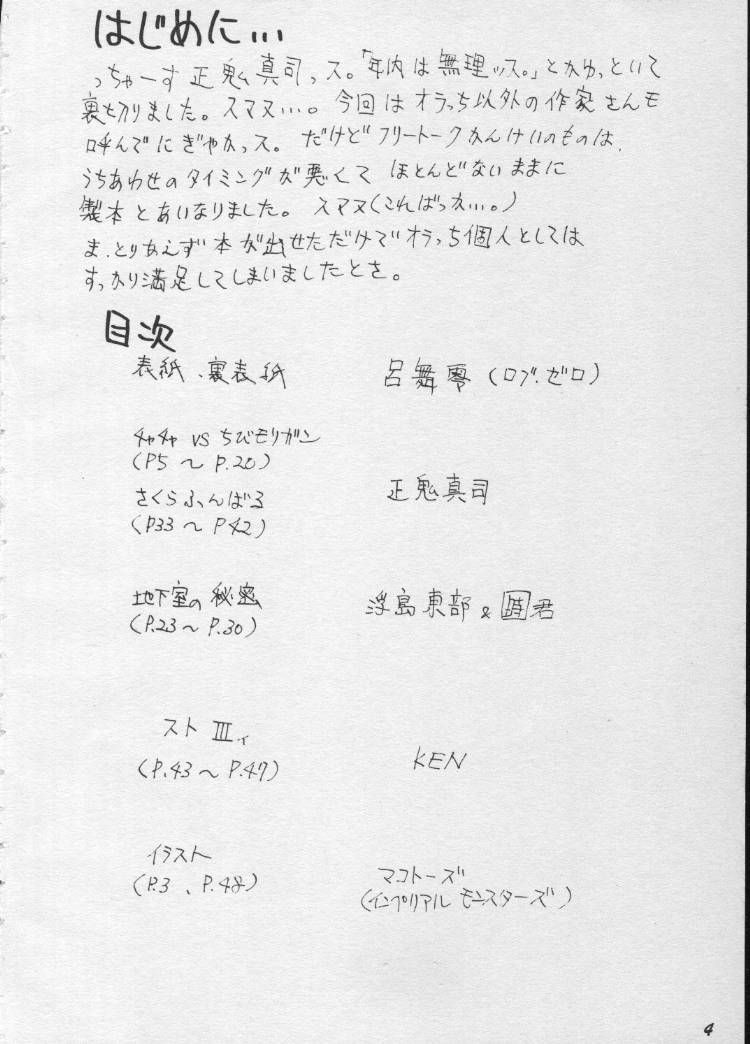 はじめに…
っちゃーす 正鬼真司っス。「年内は無理ッス。」とかゆっといて
裏を刷りました。スマヌ…。今回はオラっち以外の作家さんモ
呼んでにぎやかっス。だけどフリートークかんけいのものは、
うちあわせのタイミングが悪くて ほとんどないままに
製本とあいなりました。スマヌ(こればっかい…。)
ま、とりあえず本が出せただけでオラっち個人としては
すっかり満足してしまいましたとさ。
目次
表紙、裏表紙 呂舞零(ロブ・ゼロ)
チャチャ VS ちびモリガン
(P5 〜 P.20)
さくらふんばる 正鬼真司
(P33 〜 P42)
地下室の秘密 浮島東部 & 君
(P.23 〜 P.30)
スト III
(P.43 〜 P.47) KEN
イラスト
(P.3 、P.48) マコトーズ
(インペリアル モンスターズ)
4